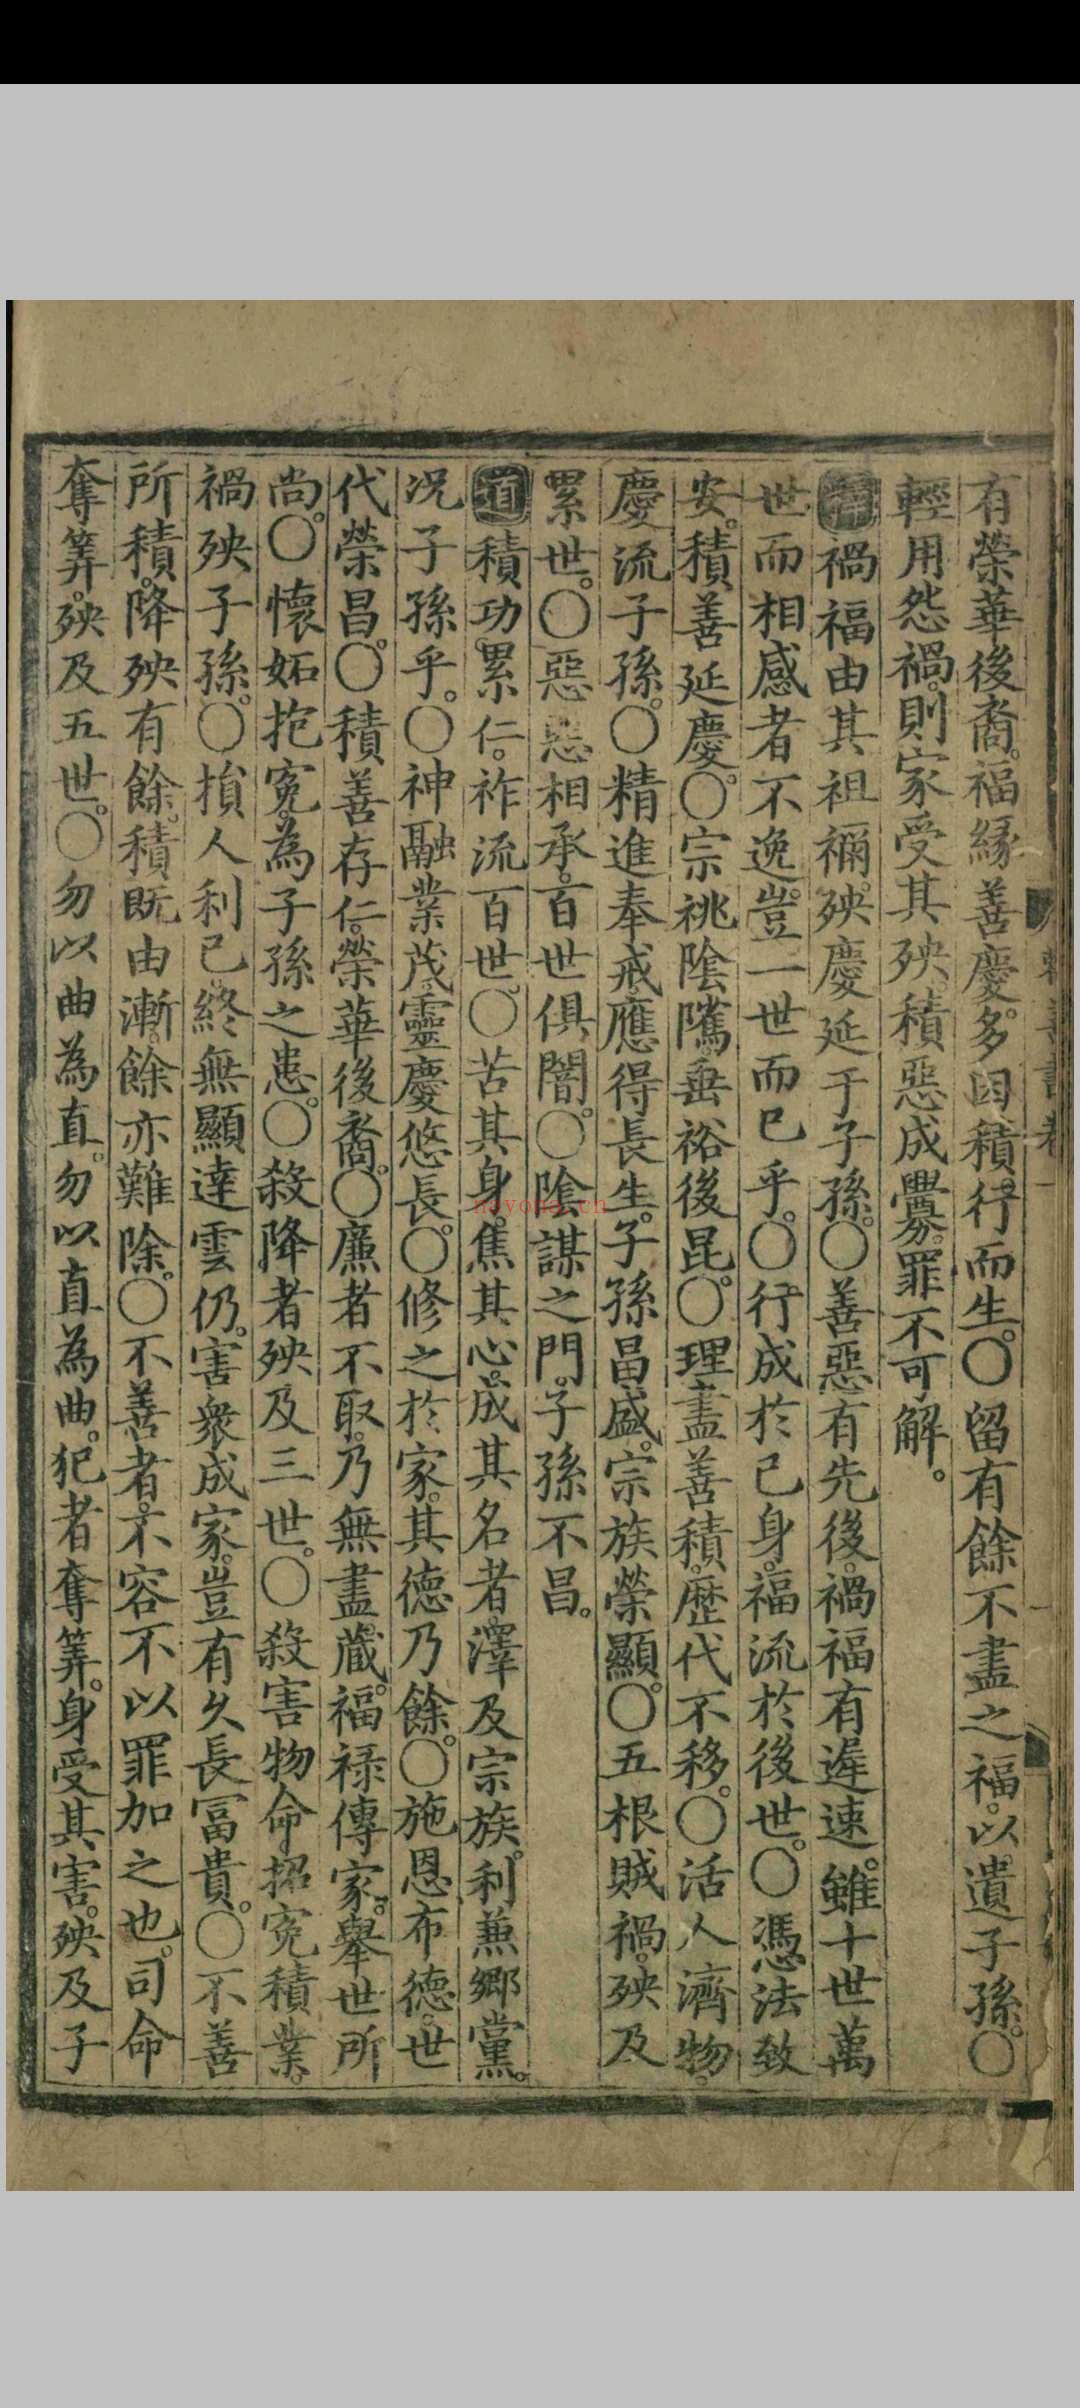 有榮華後裔。福緣善慶。多因積行而生。〇留有餘不盡之福。以遺子孫。〇
輕用怨禍。則家受其殃。積惡成釁。罪不可解。
禍福由其祖禰。殃慶延于子孫。〇善惡有先後。禍福有遲速。雖十世萬
世而相感者不逸。豈一世而已乎。〇行成於己身。福流於後世。〇憑法致
安。積善延慶。〇宗祧陰隲。垂裕後昆。〇理盡善積。歷代不移。〇活人濟物。
慶流子孫。〇精進奉戒。應得長生。子孫昌盛。宗族榮顯。〇五根賊禍。殃及
累世。〇惡惡相承。百世俱闇。〇陰謀之門。子孫不昌。
道積功。累仁。祚流百世。〇苦其身。焦其心。成其名者。澤及宗族。利兼鄉黨。
况子孫乎。〇神融業茂。靈慶悠長。〇修之於家。其德乃餘。〇施恩布德。世
代榮昌。〇積善存仁。榮華後裔。〇廉者不取。乃無盡藏。福祿傳家。舉世所
尚。〇懷妬抱冤。為子孫之患。〇殺降者殃及三世。〇殺害物命招冤積業。
禍殃子孫。〇損人利己。終無顯達雲仍。害衆成家。豈有久長冨貴。〇不善
所積。降殃有餘。積既由漸。餘亦難除。〇不善者。不容不以罪加之也。司命
奪筭。殃及五世。〇勿以曲為直。勿以直為曲。犯者奪筭。身受其害。殃及子
novoha.cn